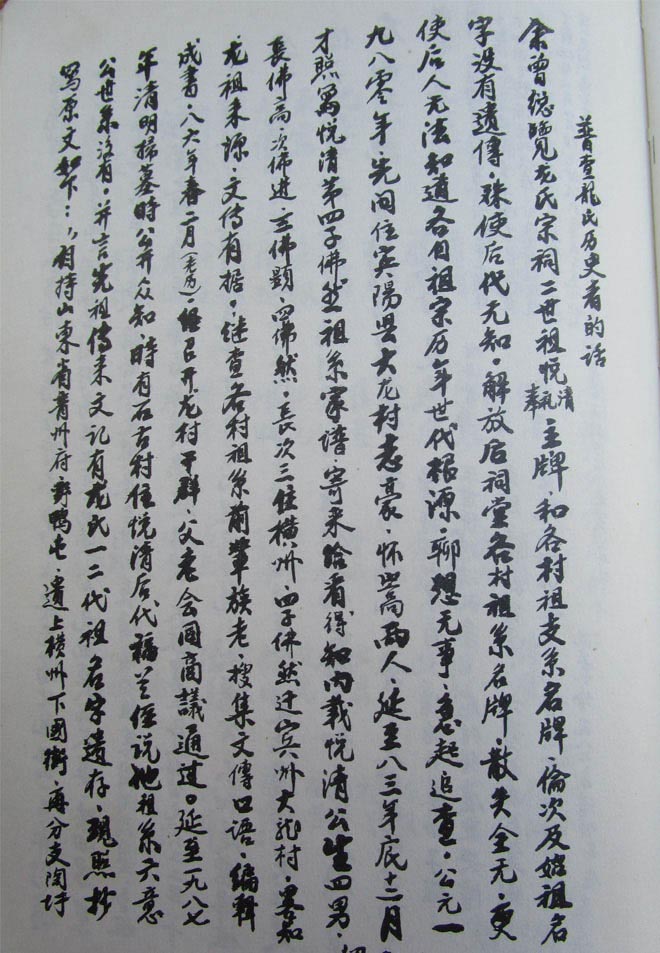 普查龍氏历史者的话
余曾总览龙氏宗祠二世祖悦清奉礼主牌·和各村祖支系名牌·倫次及始祖名
字没有遺傳·殊使后代无知·解放后祠堂各村祖系名牌·散失全无·更
使后人无法知道各自祖宗历年世代根源·聊想无事·意起追查·公元一
九八零年·先间住宾陽县大龙村志豪·怀嵩两人·延至八三年底十二月
才照寫悦清第四子佛然祖系家谱·寄来给看得知内载悦清公生四男·
長佛高·次佛进·三佛顕·四佛然·長次三住横州·四子佛然迁宾州大龙村·畧知
龙祖来源·文传有据·继查各村祖系前輩族老·搜集文傳口语·编輯
成書·八六年春二月(老历)·经召开龙村干群·父老会同商議通过。延至一九八七
年清明掃墓時·公开众知·時有石古村住悦清后代福兰侄说他祖系六意
公世系没有·并言先祖传来文记有龙氏一二代祖名字遺存·現照抄
寫原文如下：·自持山東省青州府野鸭屯·遺上横州下國街·再分支陶圩